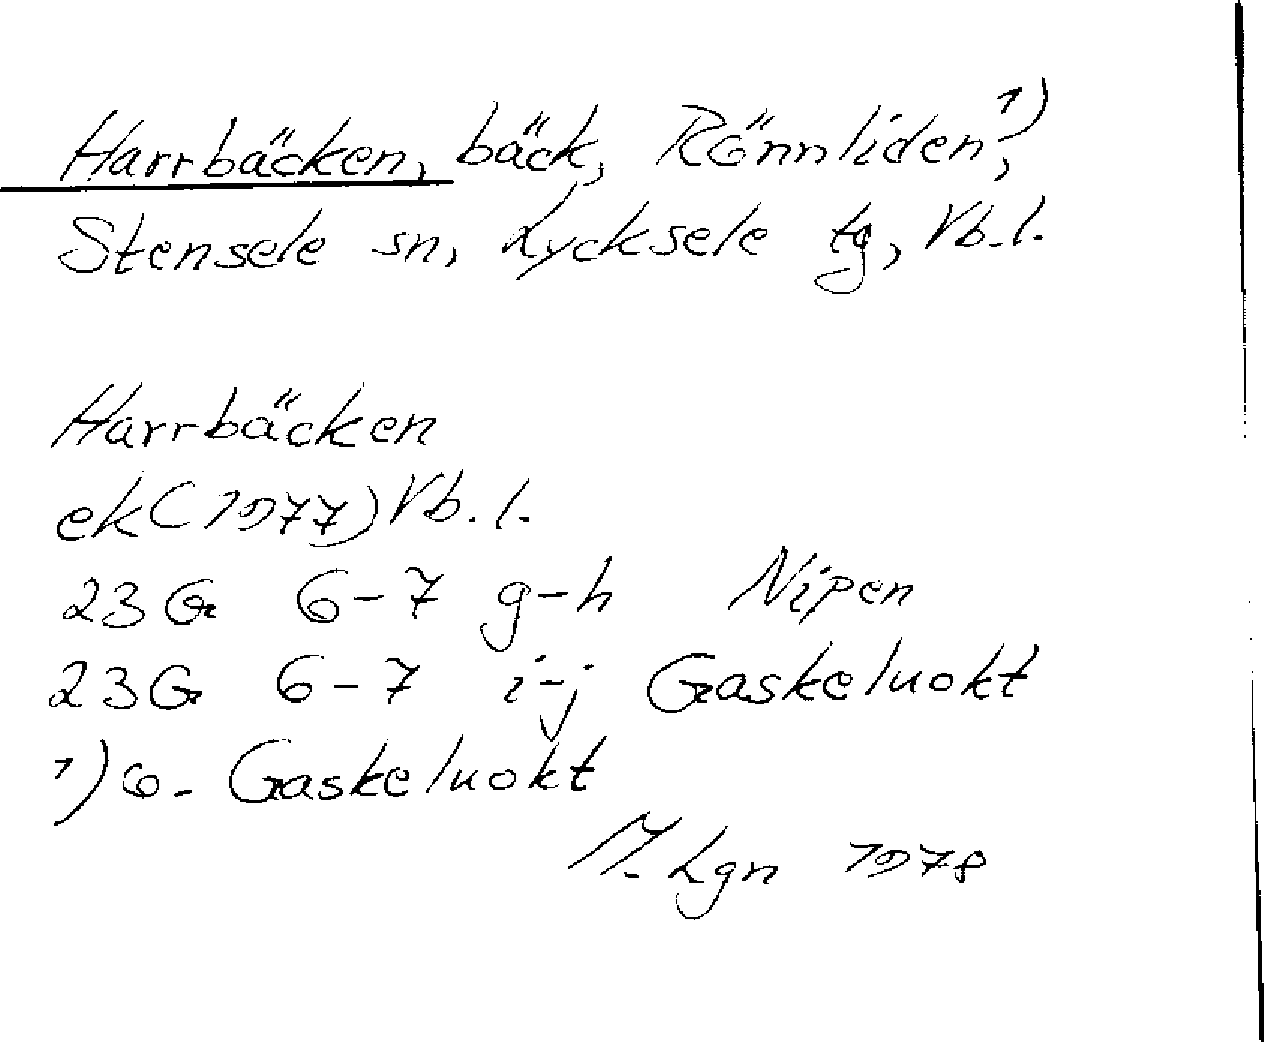 Harrbäcken, bäck, Rönnliden¹⁾,
Stensele sn, Lycksele tg, Vb.l.
Harrbäcken
ek (1977) Vb.l.
23G 6-7 g-h Nipen
23G 6-7 i-j Gaskeluokt
¹⁾ o. Gaskeluokt
M. Lgn 1978